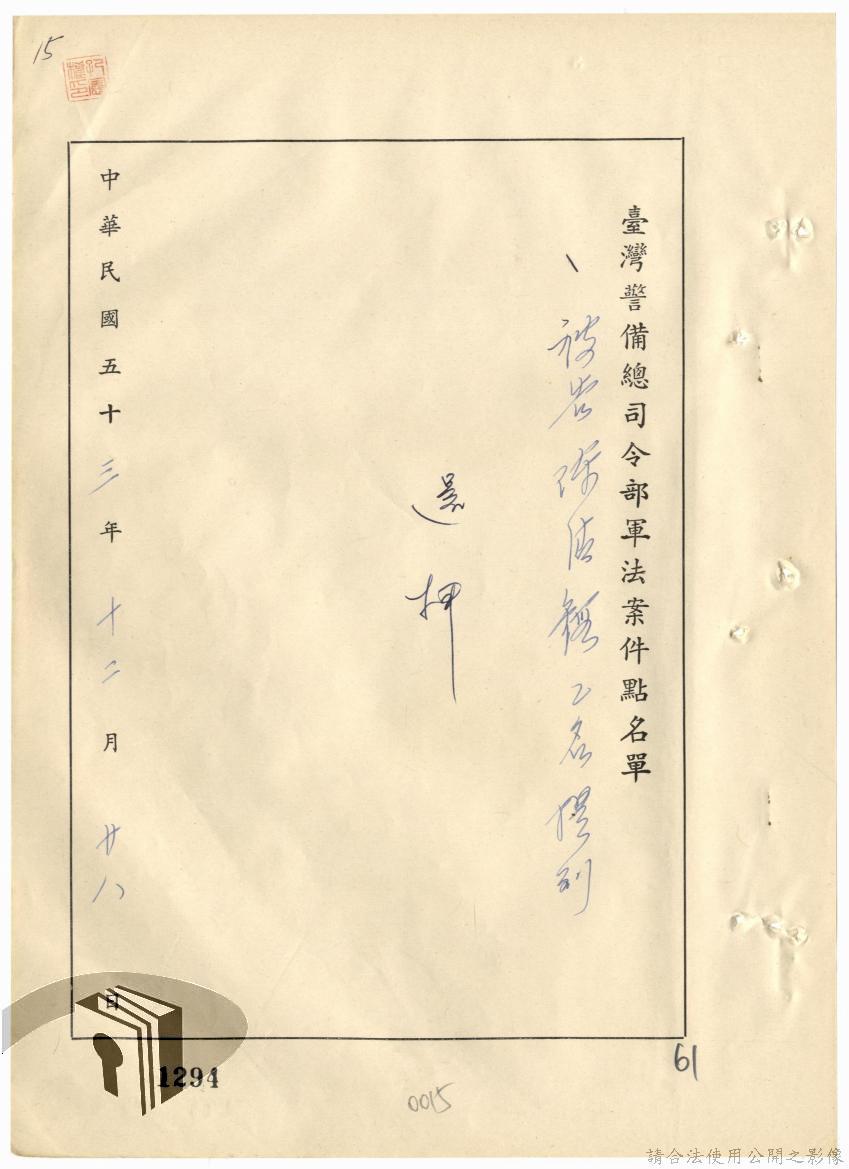 15
臺灣警備總司令部軍法案件點名單
、被告陳佳鎮乙名提到
還押
中華民國五十三年十二月廿八日
1294
61
0015
請合法使用公開之影像